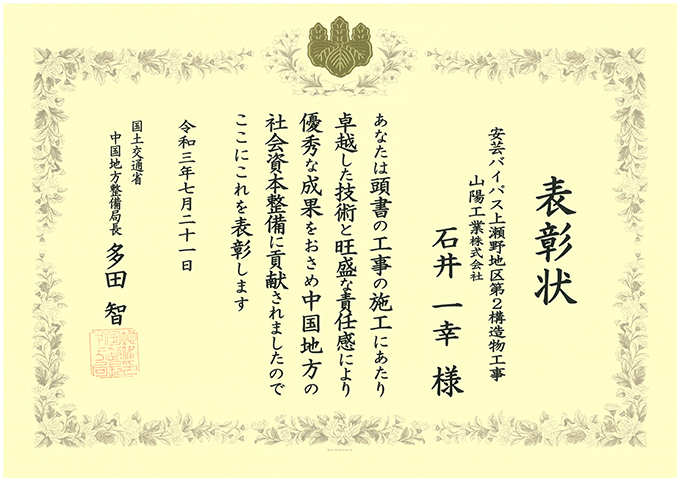 表彰状
安芸バイパス上瀬野地区第2構造物工事
山陽工業株式会社
石井一幸様
あなたは頭書の工事の施工にあたり
卓越した技術と旺盛な責任感により
優秀な成果をおさめ中国地方の
社会資本整備に貢献されましたので
ここにこれを表彰します
令和三年七月二十一日
国土交通省
中国地方整備局長 多田智